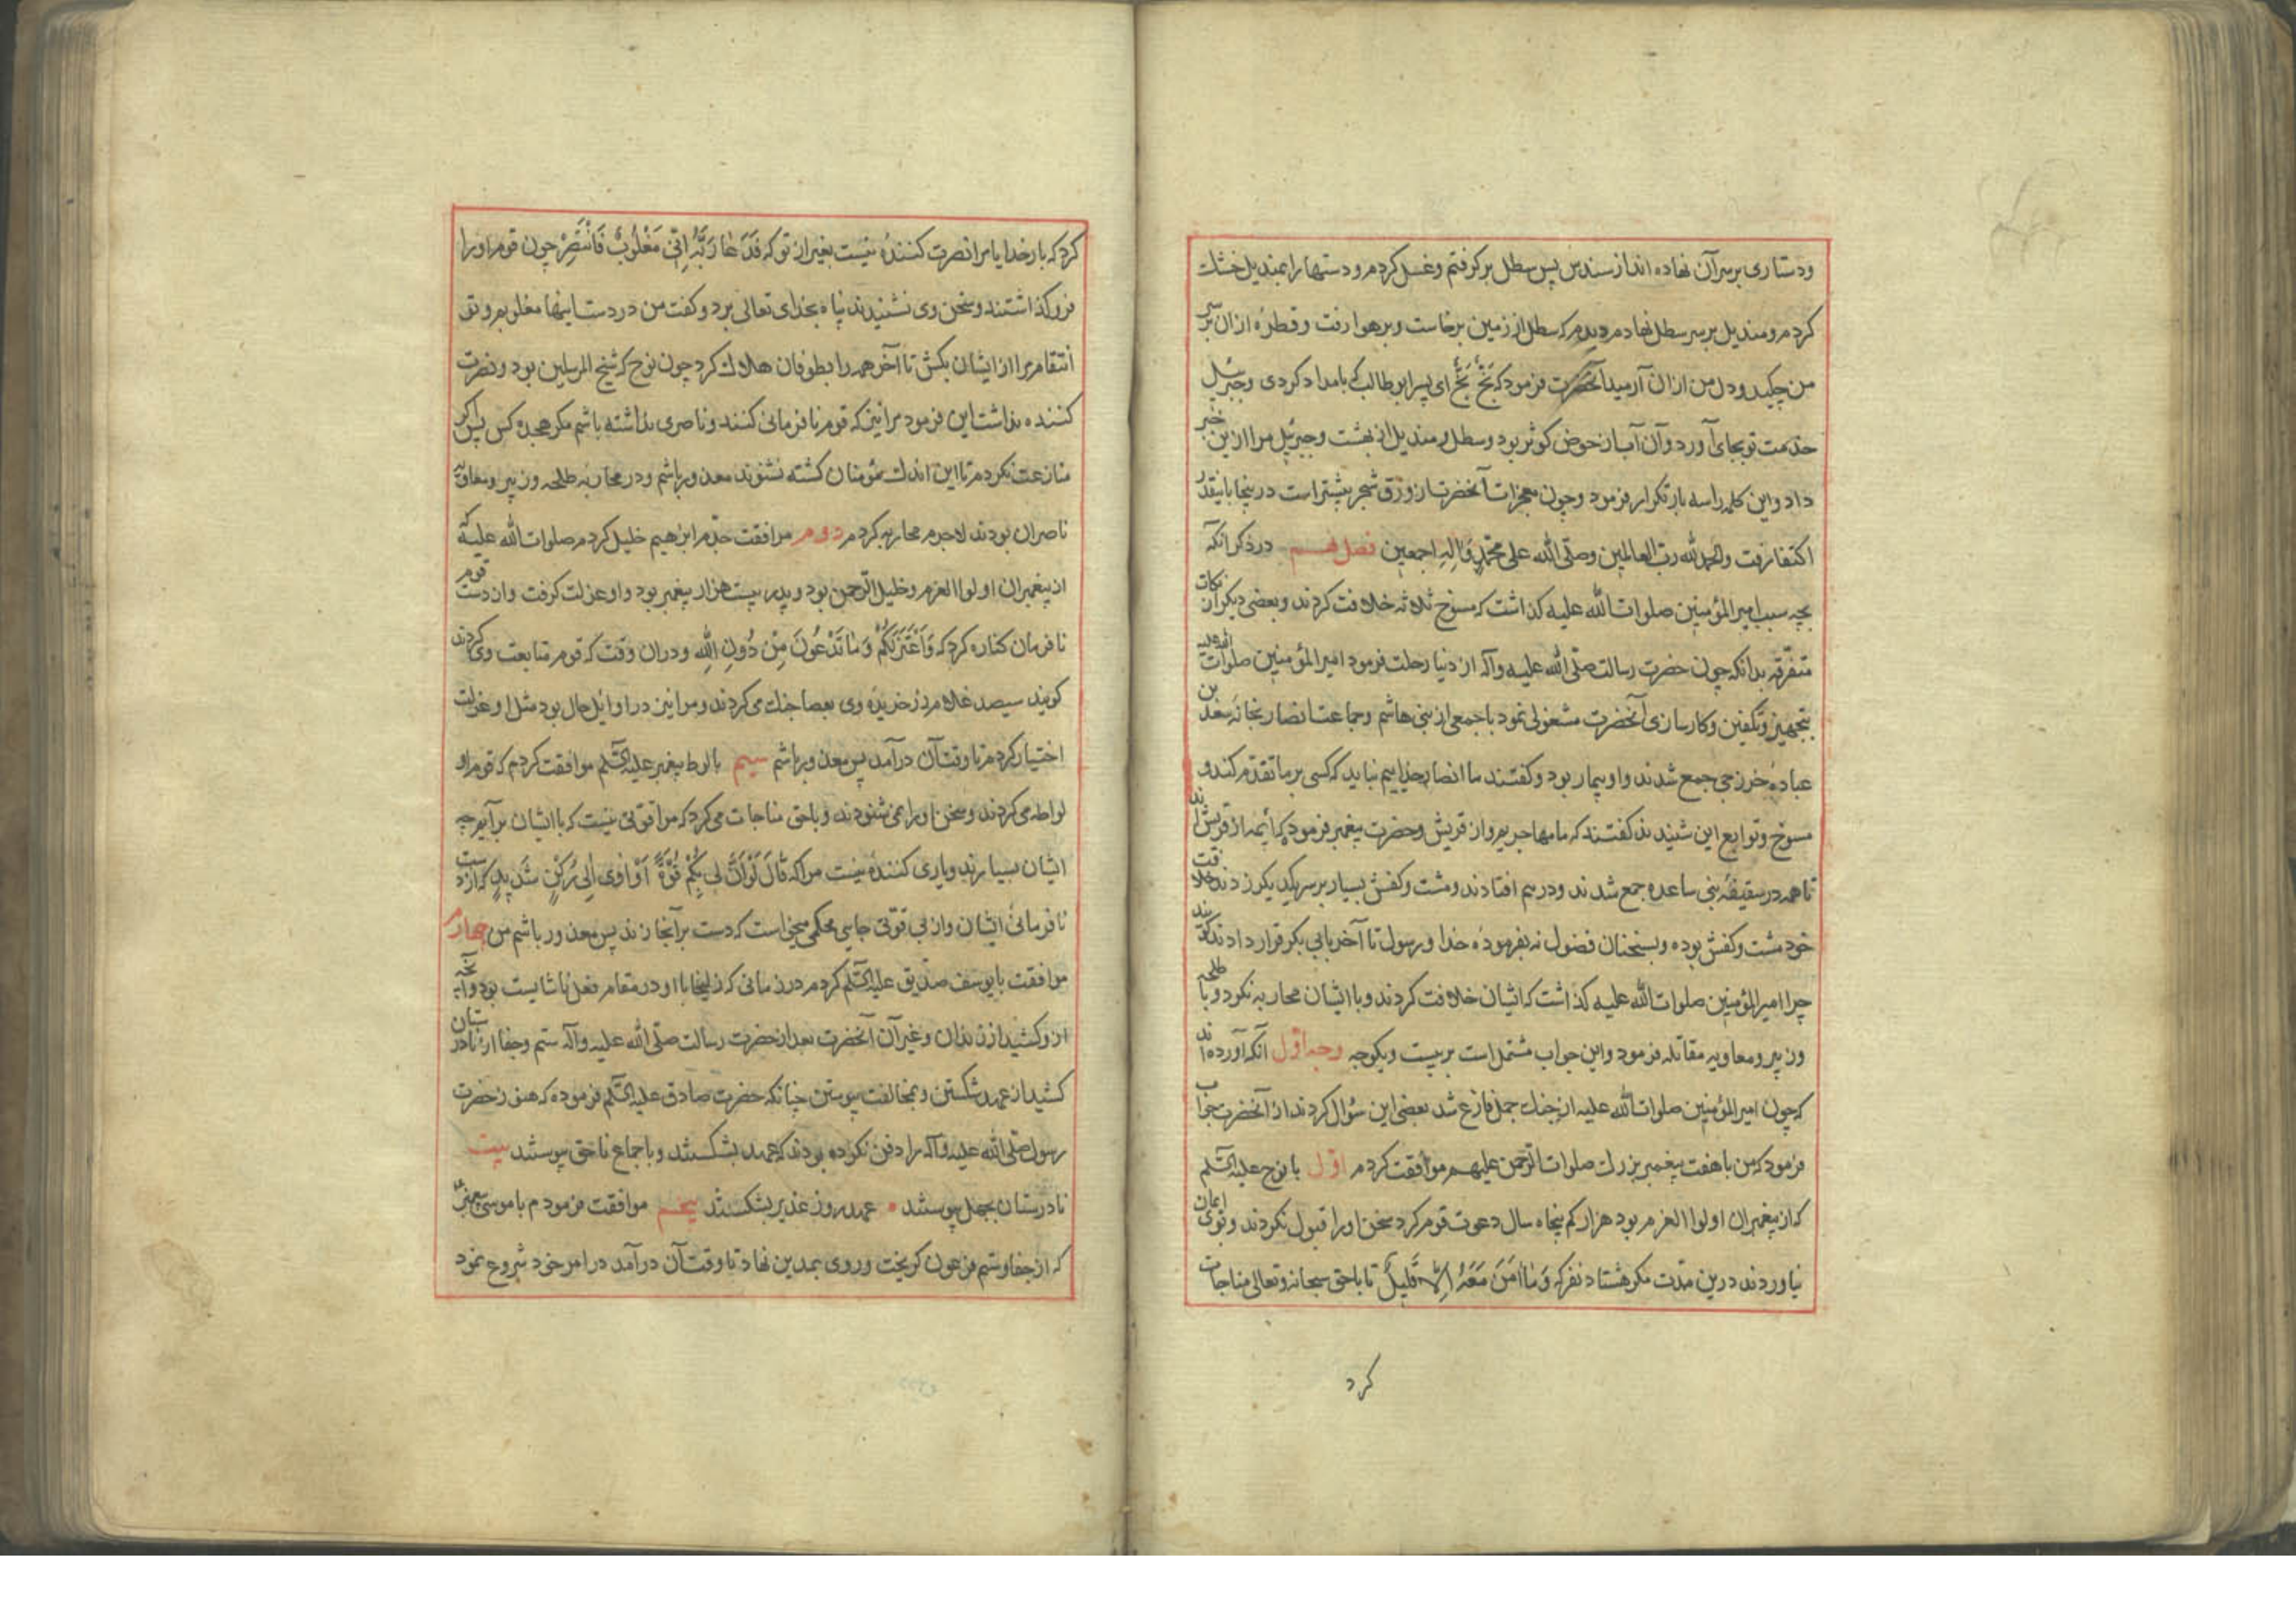 ودستاری بر سر آن نهاده اند از سندس پس سطل بر کرفتم وغسل کردم ودستها را بمندیل خشك
کردم ومندیل بر سر سطل نهادم دیدم که سطل از زمین برخاست وبر هوا رفت وقطرهٔ ازان بر سر
من چکید ودل من ازان آرمید آنحضرت فرمود که بَخٍّ بَخٍّ ای پسر ابو طالب که بامداد کردی وجبرئیل
خدمت تو بجای آورد وآن آب از حوض کوثر بود وسطل ومندیل از بهشت وجبرئیل مرا ازین خبر
داد واین کلمه را سه بار تکرار فرمود وچون معجزات آنحضرت از ورق شجر بیشتر است درینجا باینقدر
اکتفا رفت والحمد لله رب العالمین وصلّی الله علی محمّدٍ وَالِهِ اجمعین فصل نهـم در ذکر انکه
بچه سبب امیر المؤمنین صلوات الله علیه کذاشت که مسوخ ثلاثه خلافت کردند وبعضی دیکر از نکات
متفرّقه بدانکه چون حضرت رسالت صلّی الله علیه وآله از دنیا رحلت فرمود امیر المؤمنین صلوات الله علیه
بتجهیز وتکفین وکارسازی آنحضرت مشغولی نمود با جمعی از بنی هاشم وجماعت انصار بخانه سَعْد بن
عبادهٔ خزرجی جمع شدند واو بیمار بود وکفتند ما انصار خداییم نباید که کسی بر ما تقدّم کند و
مسوخ وتوابع این شنیدند کفتند که ما مهاجریم واز قریش وحضرت پیغمبر فرمود که أئمه از قریش اند
تا همه در سقیفهٔ بنی ساعده جمع شدند ودر هم افتادند ومشت وکفش بسیار بر سر یکدیکر زدند خلافت
خود مشت وکفش بوده وبسخنان فضول نه بفرمودهٔ خدا ورسول تا آخر بابی بکر قرار دادند کویند
چرا امیر المؤمنین صلوات الله علیه کذاشت که اثیان خلافت کردند وبا ایشان محاربه نکرد وبا طلحه
وزبیر ومعاویه مقاتله فرمود واین جواب مشتمل است بر بیست ویکوجه وجه اوّل آنکه آورده اند
که چون امیر المؤمنین صلوات الله علیه از جنك جمل فارغ شد بعضی این سؤال کردند از آنحضرت جواب
فرمود که من با هفت پیغمبر بزرك صلوات الرّحمن علیهـم موافقت کردم اوّل با نوح علیه السّلم
که از پیغمبران اولوا العزم بود هزار کم پنجاه سال دعوت قوم کرد سخن او را قبول نکردند وبوی ایمان
نیاوردند درین مدّت مکر هشتاد نفر که وَمٰا اٰمَنَ مَعَهُ اِلّٰا قَلِیلٌ تا با حق سبحانه وتعالی مناجات
کرد
کرد که بار خدایا مرا نصرت کنندهٔ نیست بغیر از تو که فَدَعٰا رَبَّهُ اَنّی مَغْلُوبٌ فَانْتَصِرْ چون قوم او را
فرو کذاشتند وسخن وی نشنیدند پناه بخدای تعالی برد وکفت من در دست اینها مغلوبم وتو
انتقام مرا از ایشان بکش تا آخر همه را بطوفان هلاك کرد چون نوح که شیخ المرسلین بود ونصرت
کننده نداشت این فرمود مرا نیز که قوم نافرمانی کنند وناصری نداشته باشم مکر هجده کس پس اکر
منازعت نکردم تا این اندك مؤمنان کشته نشوند معذور باشم ودر محاربهٔ طلحه وزبیر ومعاویه
ناصران بودند لاجرم محاربه کردم دوم موافقت جدّم ابرٰهیم خلیل کردم صلوات الله علیه که
از پیغمبران اولوا العزم وخلیل الرّحمن بود وپدر بیست هزار پیغمبر بود واو عزلت کرفت واز دست قوم
نافرمان کناره کرد که وَاَعْتَزِلُکُمْ وَمٰا تَدْعُونَ مِنْ دُونِ اللهِ ودران وقت که قوم متابعت وی کردند
کویند سیصد غلام زرخریدهٔ وی بعصا جنك می کردند ومرا نیز در اوایل حال بود مثل او عزلت
اختیار کردم تا وقت آن درآمد پس معذور باشم سیم با لوط پیغمبر علیه السّلم موافقت کردم که قوم او
لواطه می کردند وسخن او را نمی شنودند وبا حق مناجات می کرد که مرا قوتی نیست که با ایشان برآیم چه
ایشان بسیارند ویاری کنندهٔ نیست مرا که قٰالَ لَوْ اَنَّ لی بِکُمْ قُوَّةً اَوْ اٰوی اِلیٰ رُکْنٍ شَدیدٍ که از دست
نافرمانیٔ ایشان واز بی قوّتی جای محکمی میخواست که دست بر آنجا زند پس معذور باشم من چهارم
موافقت با یوسف صدّیق علیه السّلم کردم در زمانی که زلیخا با او در مقام فعل ناشایست بود وآنچه
ازو کشید از زندان وغیر آن آنحضرت بعد از حضرت رسالت صلّی الله علیه وآله ستم وجفا از نادرستان
کشید از عهد شکستن وبمخالفت پیوستن چنانکه حضرت صادق علیه السّلم فرموده که هنوز حضرت
رسول صلّی الله علیه وآله را دفن نکرده بودند که عهد بشکستند وباجماع ناحق پیوستند بیت
نادرستان بجهل پیوستند • عهد روز غدیر بشکستند پنجـم موافقت فرمودم با موسی پیغمبر
که از جفا وستم فرعون کریخت وروی بمدین نهاد تا وقت آن درآمد در امر خود شروع نمود